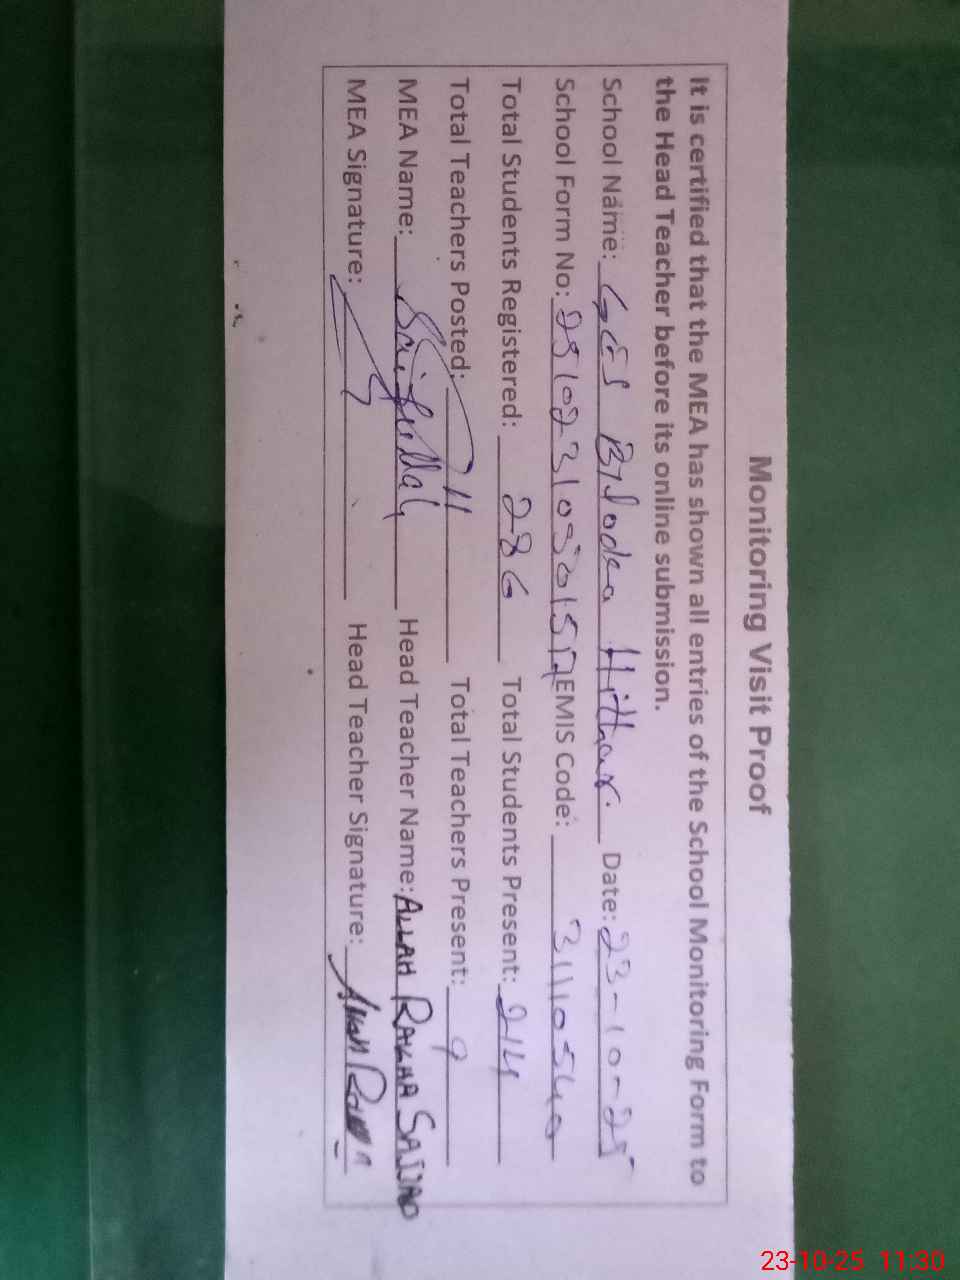 Monitoring Visit Proof
It is certified that the MEA has shown all entries of the School Monitoring Form to
the Head Teacher before its online submission.
School Name: GES Hithar. Date: 23-10-25
School Form No: EMIS Code:
Total Students Registered: 286 Total Students Present: 214
Total Teachers Posted: 11 Total Teachers Present: 9
MEA Name: Saifullah Head Teacher Name: ALLAH RAKHA SAJJAD
MEA Signature: Head Teacher Signature:
23-10-25 11:30